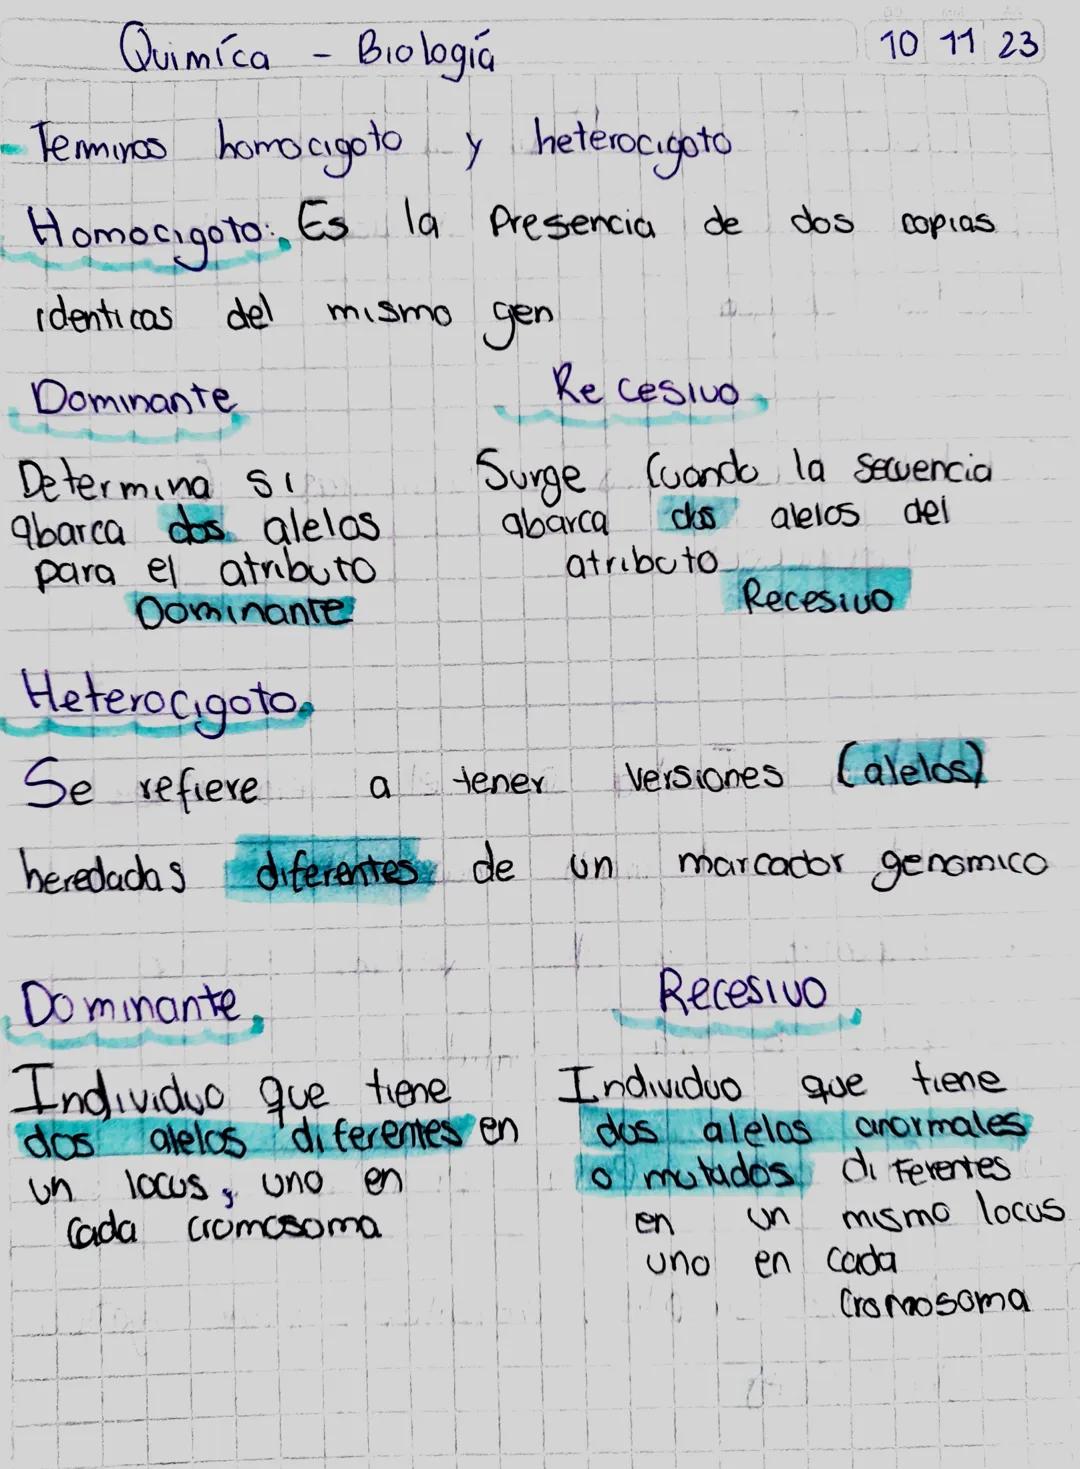 Quimíca - Biología
10 11 23
Terminos homocigoto y heterocigoto
Homocigoto: Es la Presencia de dos copias
identicas del mismo gen
Dominante
Determina si
abarca dos alelos
para el atributo
Dominante
Recesivo
Surge cuando la secuencia
abarca dos alelos del
atributo
Recesivo
Heterocigoto
Se refiere a tener versiones (alelos)
heredadas diferentes de un marcador genomico
Dominante
Individuo que tiene
dos alelos diferentes en
un locus, uno en
cada cromosoma
Recesivo
Individuo que tiene
dos alelos anormales
o mutados diferentes
en un mismo locus
uno en cada
cromosoma